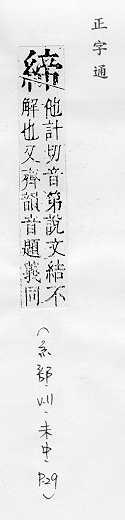 正字通
締
他計切音第說文結不
解也又齊韻音題義同
(糸部·V.11·未中·P.29)